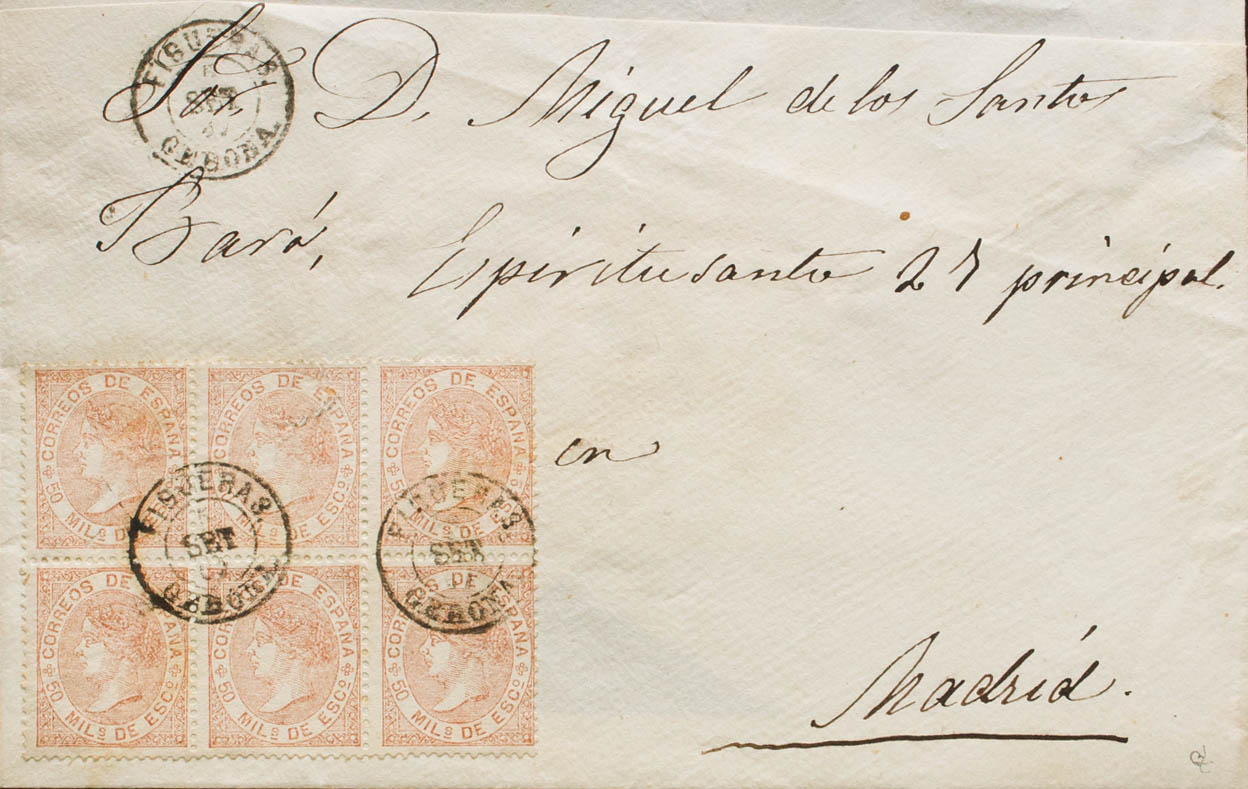 FIGUERAS.
SET
GERONA.
Sr. D. Miguel de los Santos
Baró, Espiritusanto 27 principal.
CORREOS DE ESPAÑA
50 MILS DE ESCO
CORREOS DE ESPAÑA
50 MILS DE ESCO
CORREOS DE ESPAÑA
50 MILS DE ESCO
en
FIGUERAS.
SET
GERONA
FIGUERAS
SET
GERONA
CORREOS DE ESPAÑA
50 MILS DE ESCO
CORREOS DE ESPAÑA
50 MILS DE ESCO
CORREOS DE ESPAÑA
50 MILS DE ESCO
Madrid.